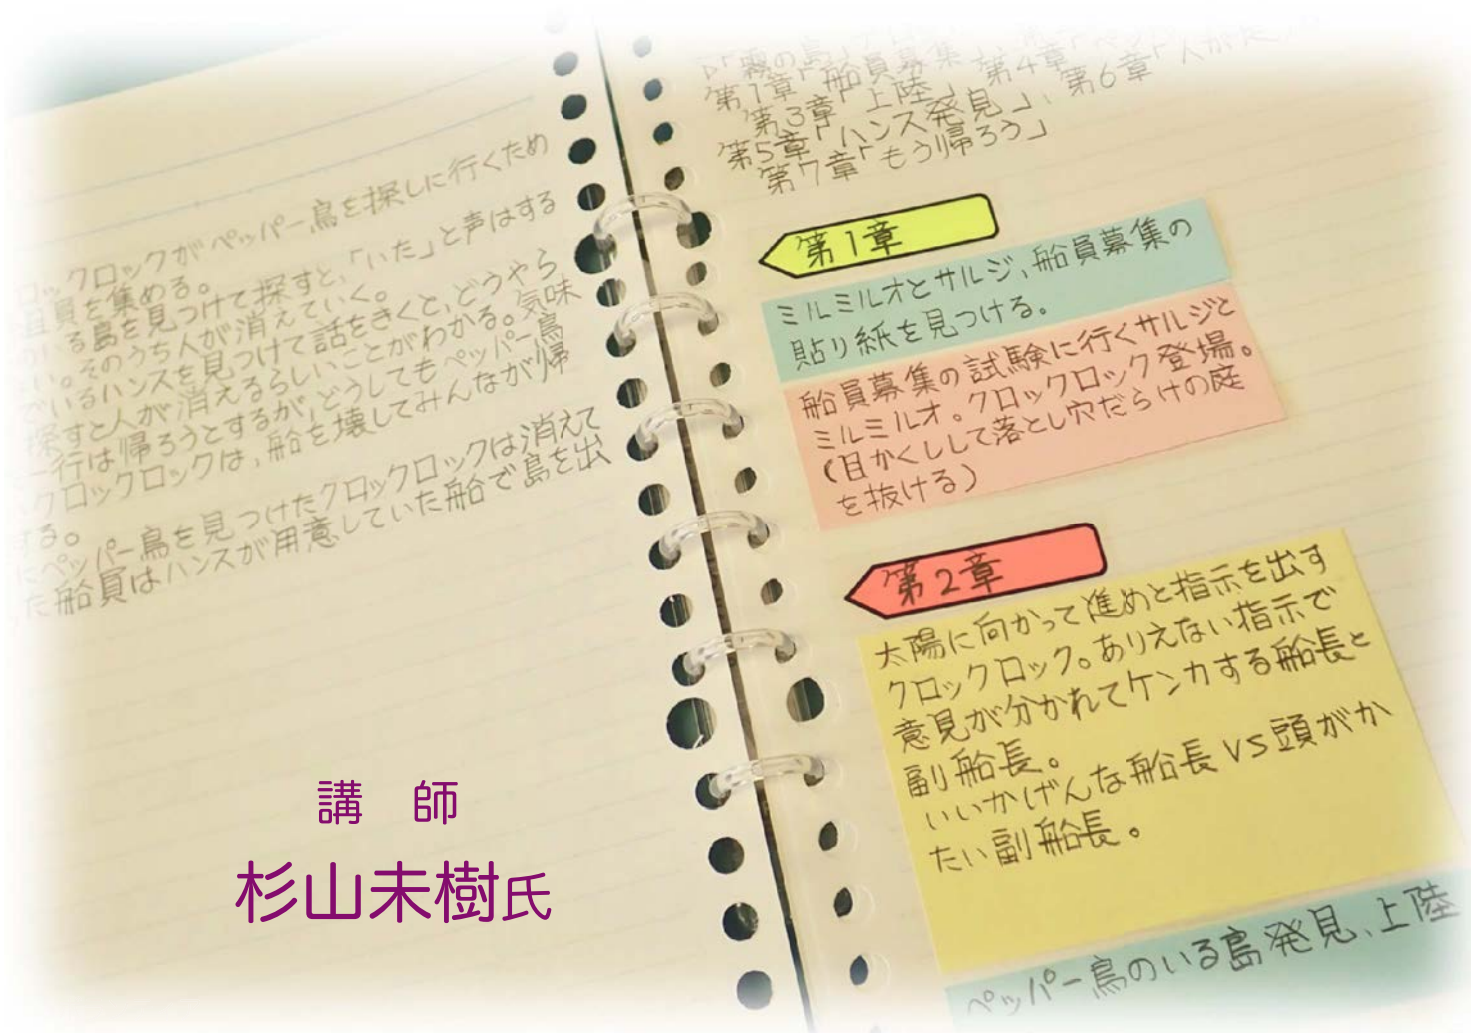 ロックロックがペッパー鳥を探しに行くため
員を集める。
いる島を見つけて探すと、「いた」と声はする
い。そのうち人が消えていく。
でいるハンスを見つけて話をきくと、どうやら
探すと人が消えるらしいことがわかる。気味
一行は帰ろうとするが、どうしてもペッパー鳥
クロックロックは、船を壊してみんなが帰
する。
ペッパー鳥を見つけたクロックロックは消えて
た船員はハンスが用意していた船で島を出
講 師
杉山未樹氏
「霧の島」
第1章「船員募集」、第
第3章「上陸」、第4章「
第5章「ハンス発見」、第6章「人が
第7章「もう帰ろう」
第1章
ミルミルオとサルジ、船員募集の
貼り紙を見つける。
船員募集の試験に行くサルジと
ミルミルオ。クロックロック登場。
(目かくしして落とし穴だらけの庭
を抜ける)
第2章
太陽に向かって進めと指示を出す
クロックロック。ありえない指示で
意見が分かれてケンカする船長と
副船長。
いいかげんな船長VS頭がか
たい副船長。
ペッパー鳥のいる島発見、上陸